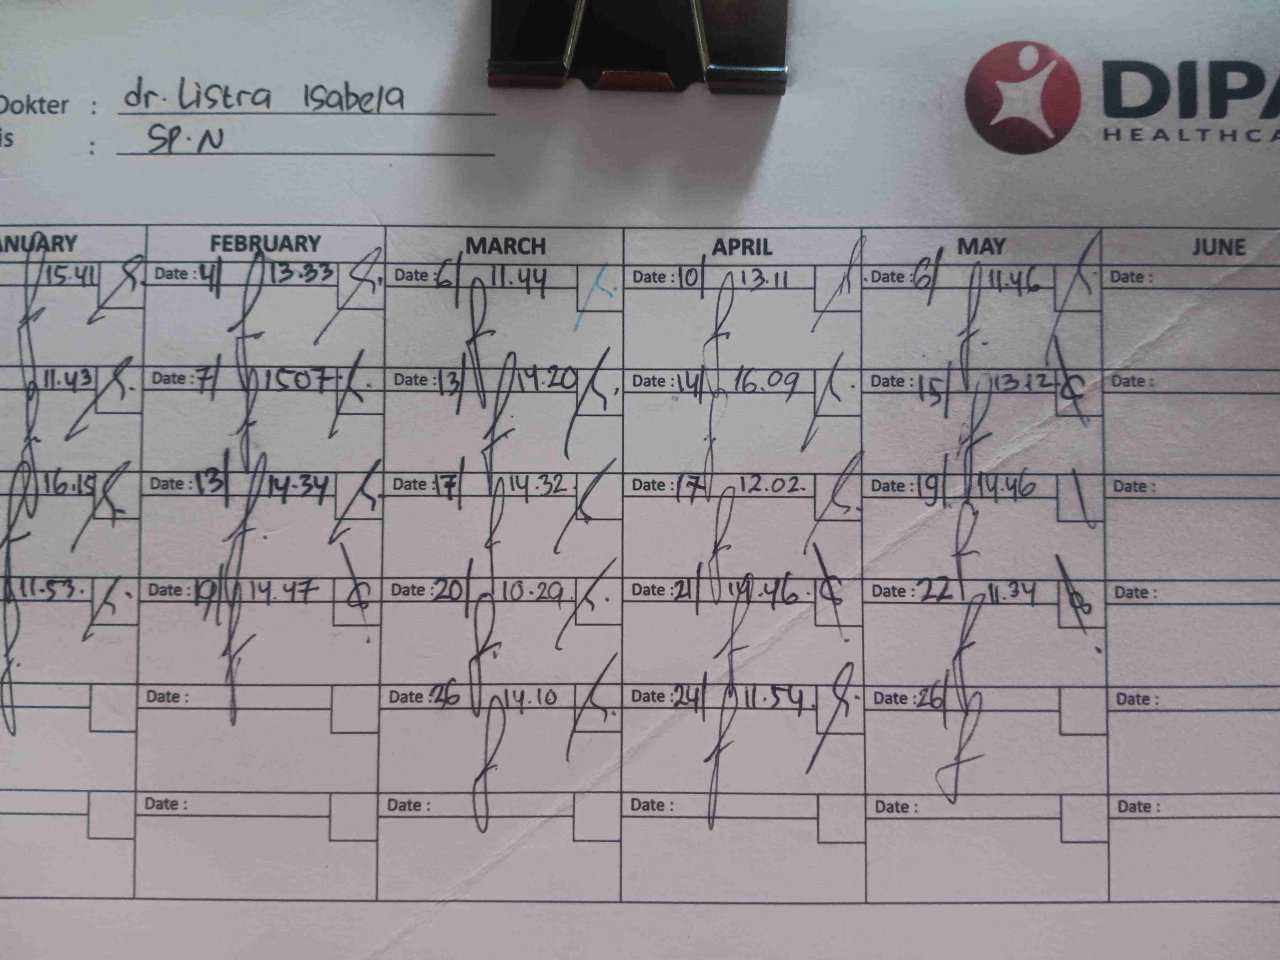 Dokter : dr. Listra Isabela
is : SP.N
DIPA
HEALTHCA
ANUARY FEBRUARY MARCH APRIL MAY JUNE
15.41 Date : 4/ 13.33 Date : 6/ 11.44 Date : 10/ 13.11 Date : 6/ 11.46 Date :
11.43 Date : 7/ 1507 Date : 13/ 14.20 Date : 14/ 16.09 Date : 15/ 13.12 Date :
16.15 Date : 13/ 14.34 Date : 17/ 14.32 Date : 17/ 12.02. Date : 19/ 14.46 Date :
11.53. Date : 19/ 14.47 Date : 20/ 10.29. Date : 21/ 14.46. Date : 22/ 11.34 Date :
Date : Date : 26 14.10 Date : 24/ 11.54. Date : 26/ Date :
Date : Date : Date : Date : Date :